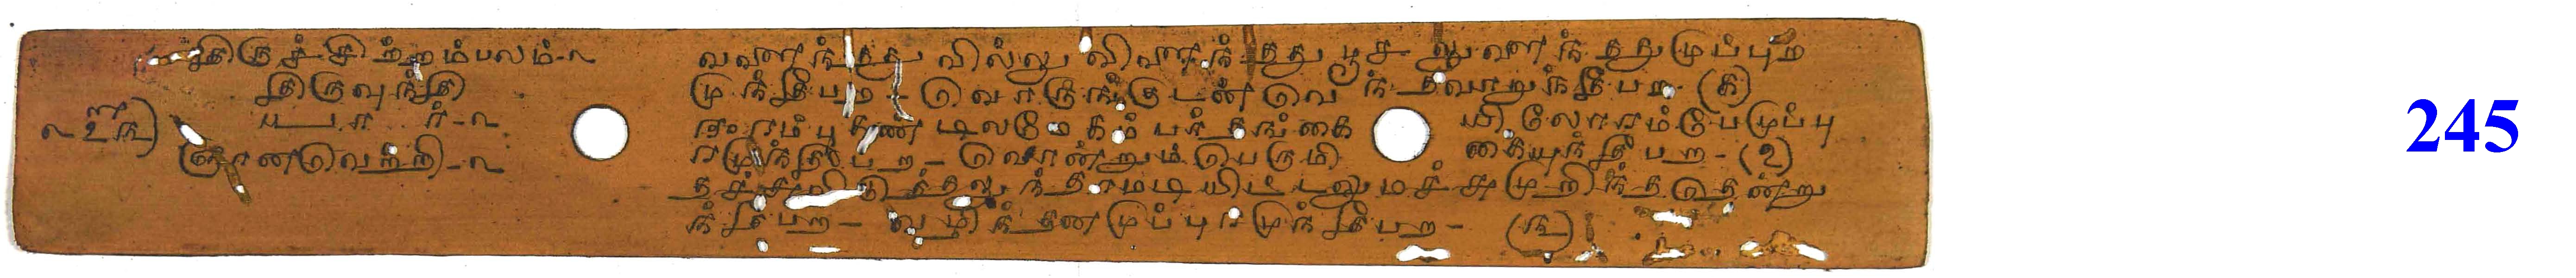 திருச்சிற்றம்பலம்-
திருவுந்தி
ஞானவெற்றி-
வளைந்தது வில்லு விளைந்தது பூசலுளைந்தது முப்புற
முந்தீபற - வொருங்குடன் வெந்தவாறுந்தீபற (க)
ஈரம்பு கண்டிலமேகம்பர்தங்கையிலோரம்பேமுப்பு
ரமுந்தீபற - வொன்றும்பெருமிகையுந்தீபற - (உ)
தச்சு விடுத்தலுந்தாமடியிட்டலுமச்சு முறிந்ததென்று
ந்தீபற - வழிந்தன முப்புரமுந்தீபற - (ங)
245